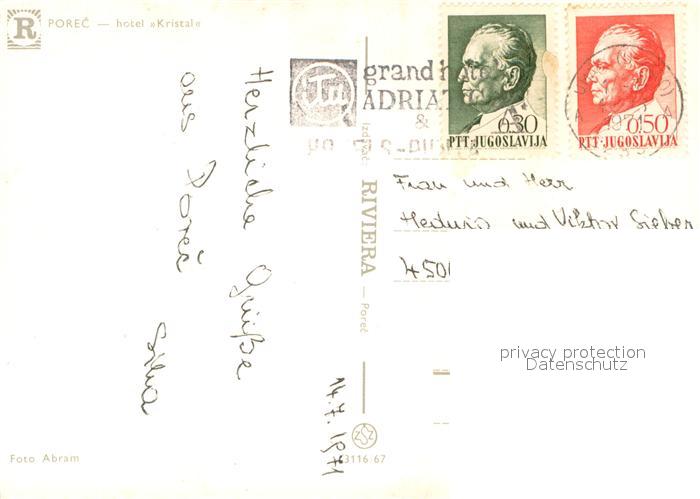 R
POREČ — hotel »Kristal«
Herzliche Grüße
aus Poreč
14.7.1971
Izdavač: RIVIERA — Poreč
ZSZ
3116/67
Foto Abram
grand hotel
ADRIAT
&
0,30
PTT·JUGOSLAVIJA
0,50
PTT·JUGOSLAVIJA
1971
Frau und Herr
und Viktor Sieber
4501
privacy protection
Datenschutz